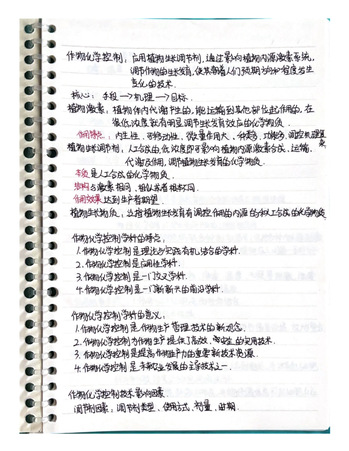 作物化学控制：应用植物生长调节剂，通过影响植物内源激素系统，
调节作物的生长发育，使其朝着人们预期方向和程度发生
变化的技术。
核心：手段→机理→目标。
植物激素：植物体内代谢产生的、能运输到其他部位起作用的、在
很低浓度就有明显调节生长发育效应的化学物质
作用特点：内生性、可移动性、微量作用大、
植物生长调节剂：人工合成的，低浓度即可影响植物内源激素合成、运输、
代谢及作用，调节植物生长发育的化学物质。
来源是人工合成的化学物质。
结构与激素相同、相似或者根本不同。
作用效果达到生产者期望。
植物生长物质：包括植物生长发育有调控作用的内源的和人工合成的化学物质
作物化学控制学科的特点：
1.作物化学控制是理论与实践有机结合的学科。
2.作物化学控制是应用性学科。
3.作物化学控制是一门交叉学科。
4.作物化学控制是一门新新兴的前沿学科。
作物化学控制学科的意义：
1.作物化学控制是作物生产管理技术的新观念。
2.作物化学控制为作物生产提供了高效、的实用技术。
3.作物化学控制是提高作物生产力的重要新技术资源。
4.作物化学控制是农业发展的主导技术之一。
作物化学控制技术影响因素
调节剂因素：调节剂类型、使用方式、剂量、时期。